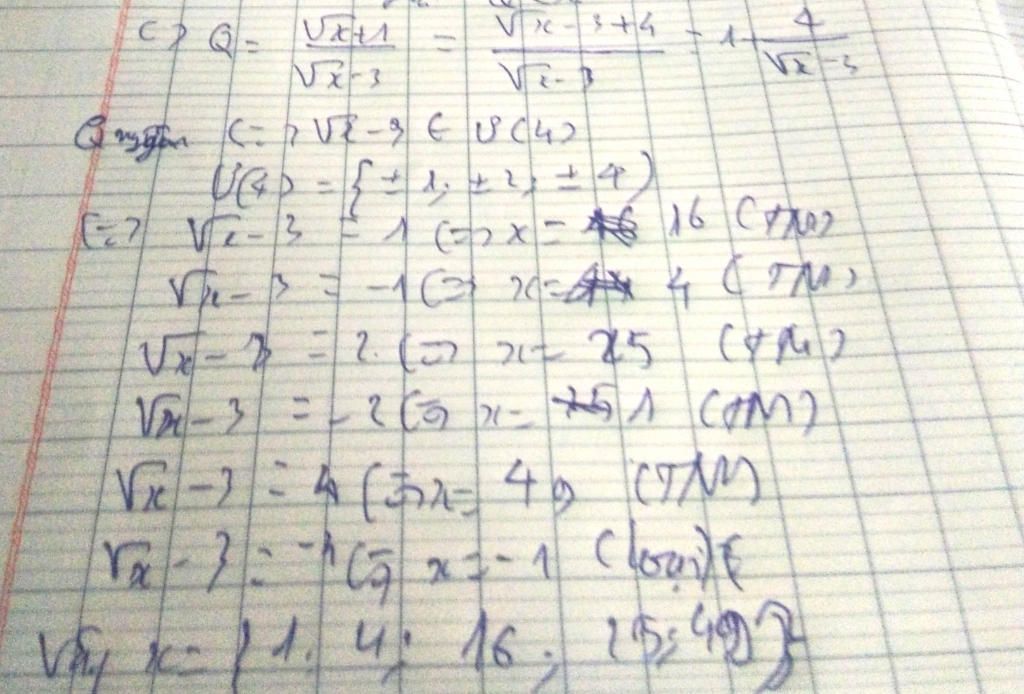 c) Q = \frac{\sqrt{x}+1}{\sqrt{x}-3} = \frac{\sqrt{x}-3+4}{\sqrt{x}-3} = 1 + \frac{4}{\sqrt{x}-3}
Q nguyên <=> √x - 3 ∈ Ư(4)
Ư(4) = {± 1; ± 2; ± 4}
<=> √x - 3 = 1 <=> x = 16 (TM)
√x - 3 = -1 <=> x = 4 (TM)
√x - 3 = 2 <=> x = 25 (TM)
√x - 3 = -2 <=> x = 1 (TM)
√x - 3 = 4 <=> x = 49 (TM)
√x - 3 = -4 <=> x = -1 (loại)
Vậy x = {1; 4; 16; 25; 49}